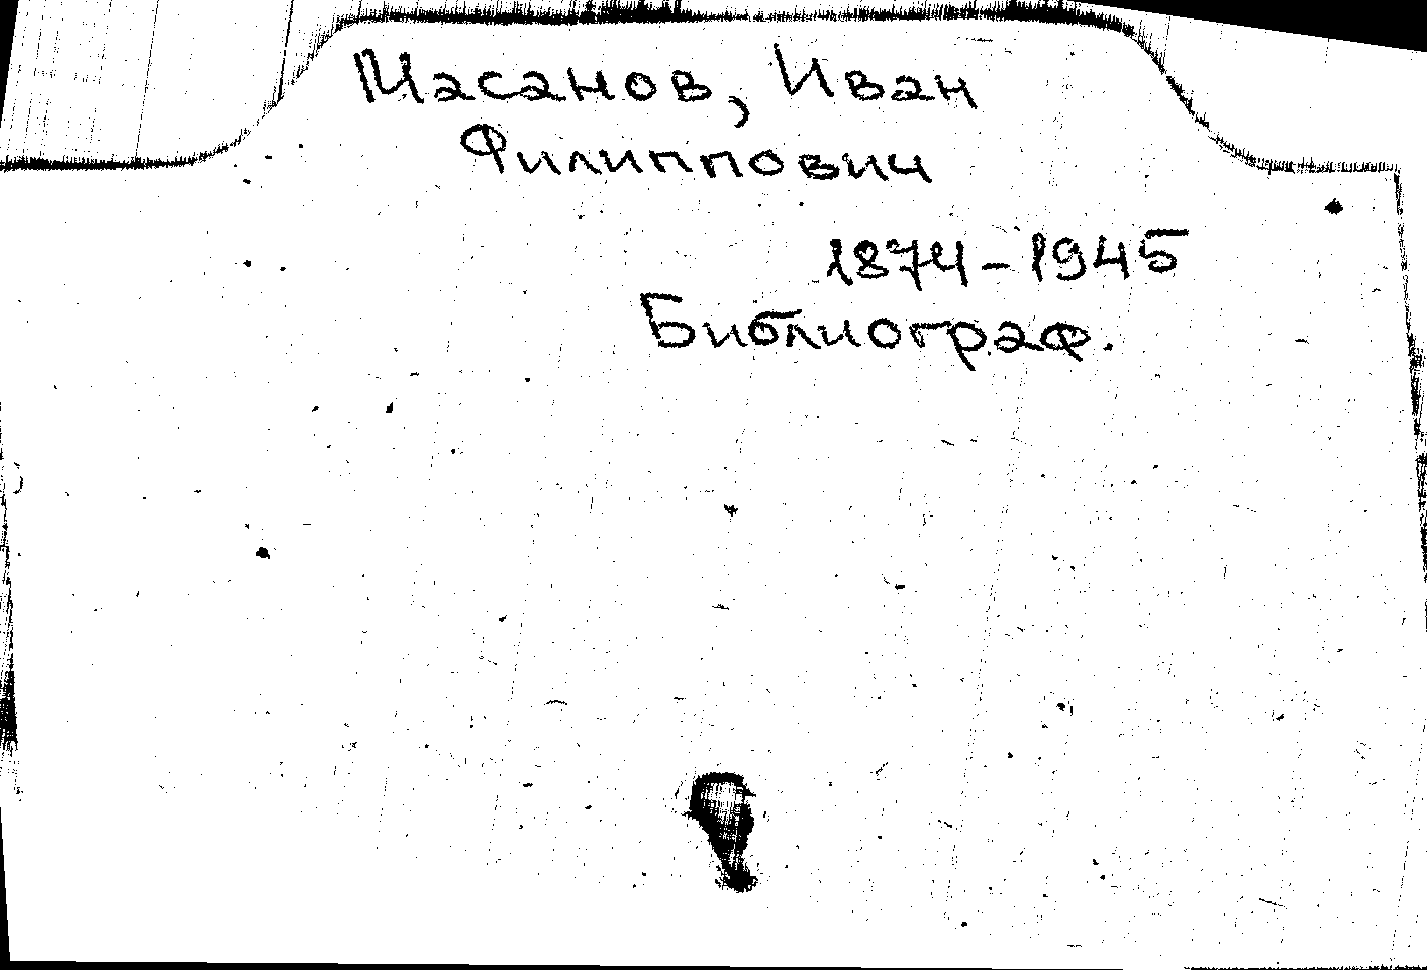 Масанов, Иван
Филиппович
1874-1945
Библиограф.